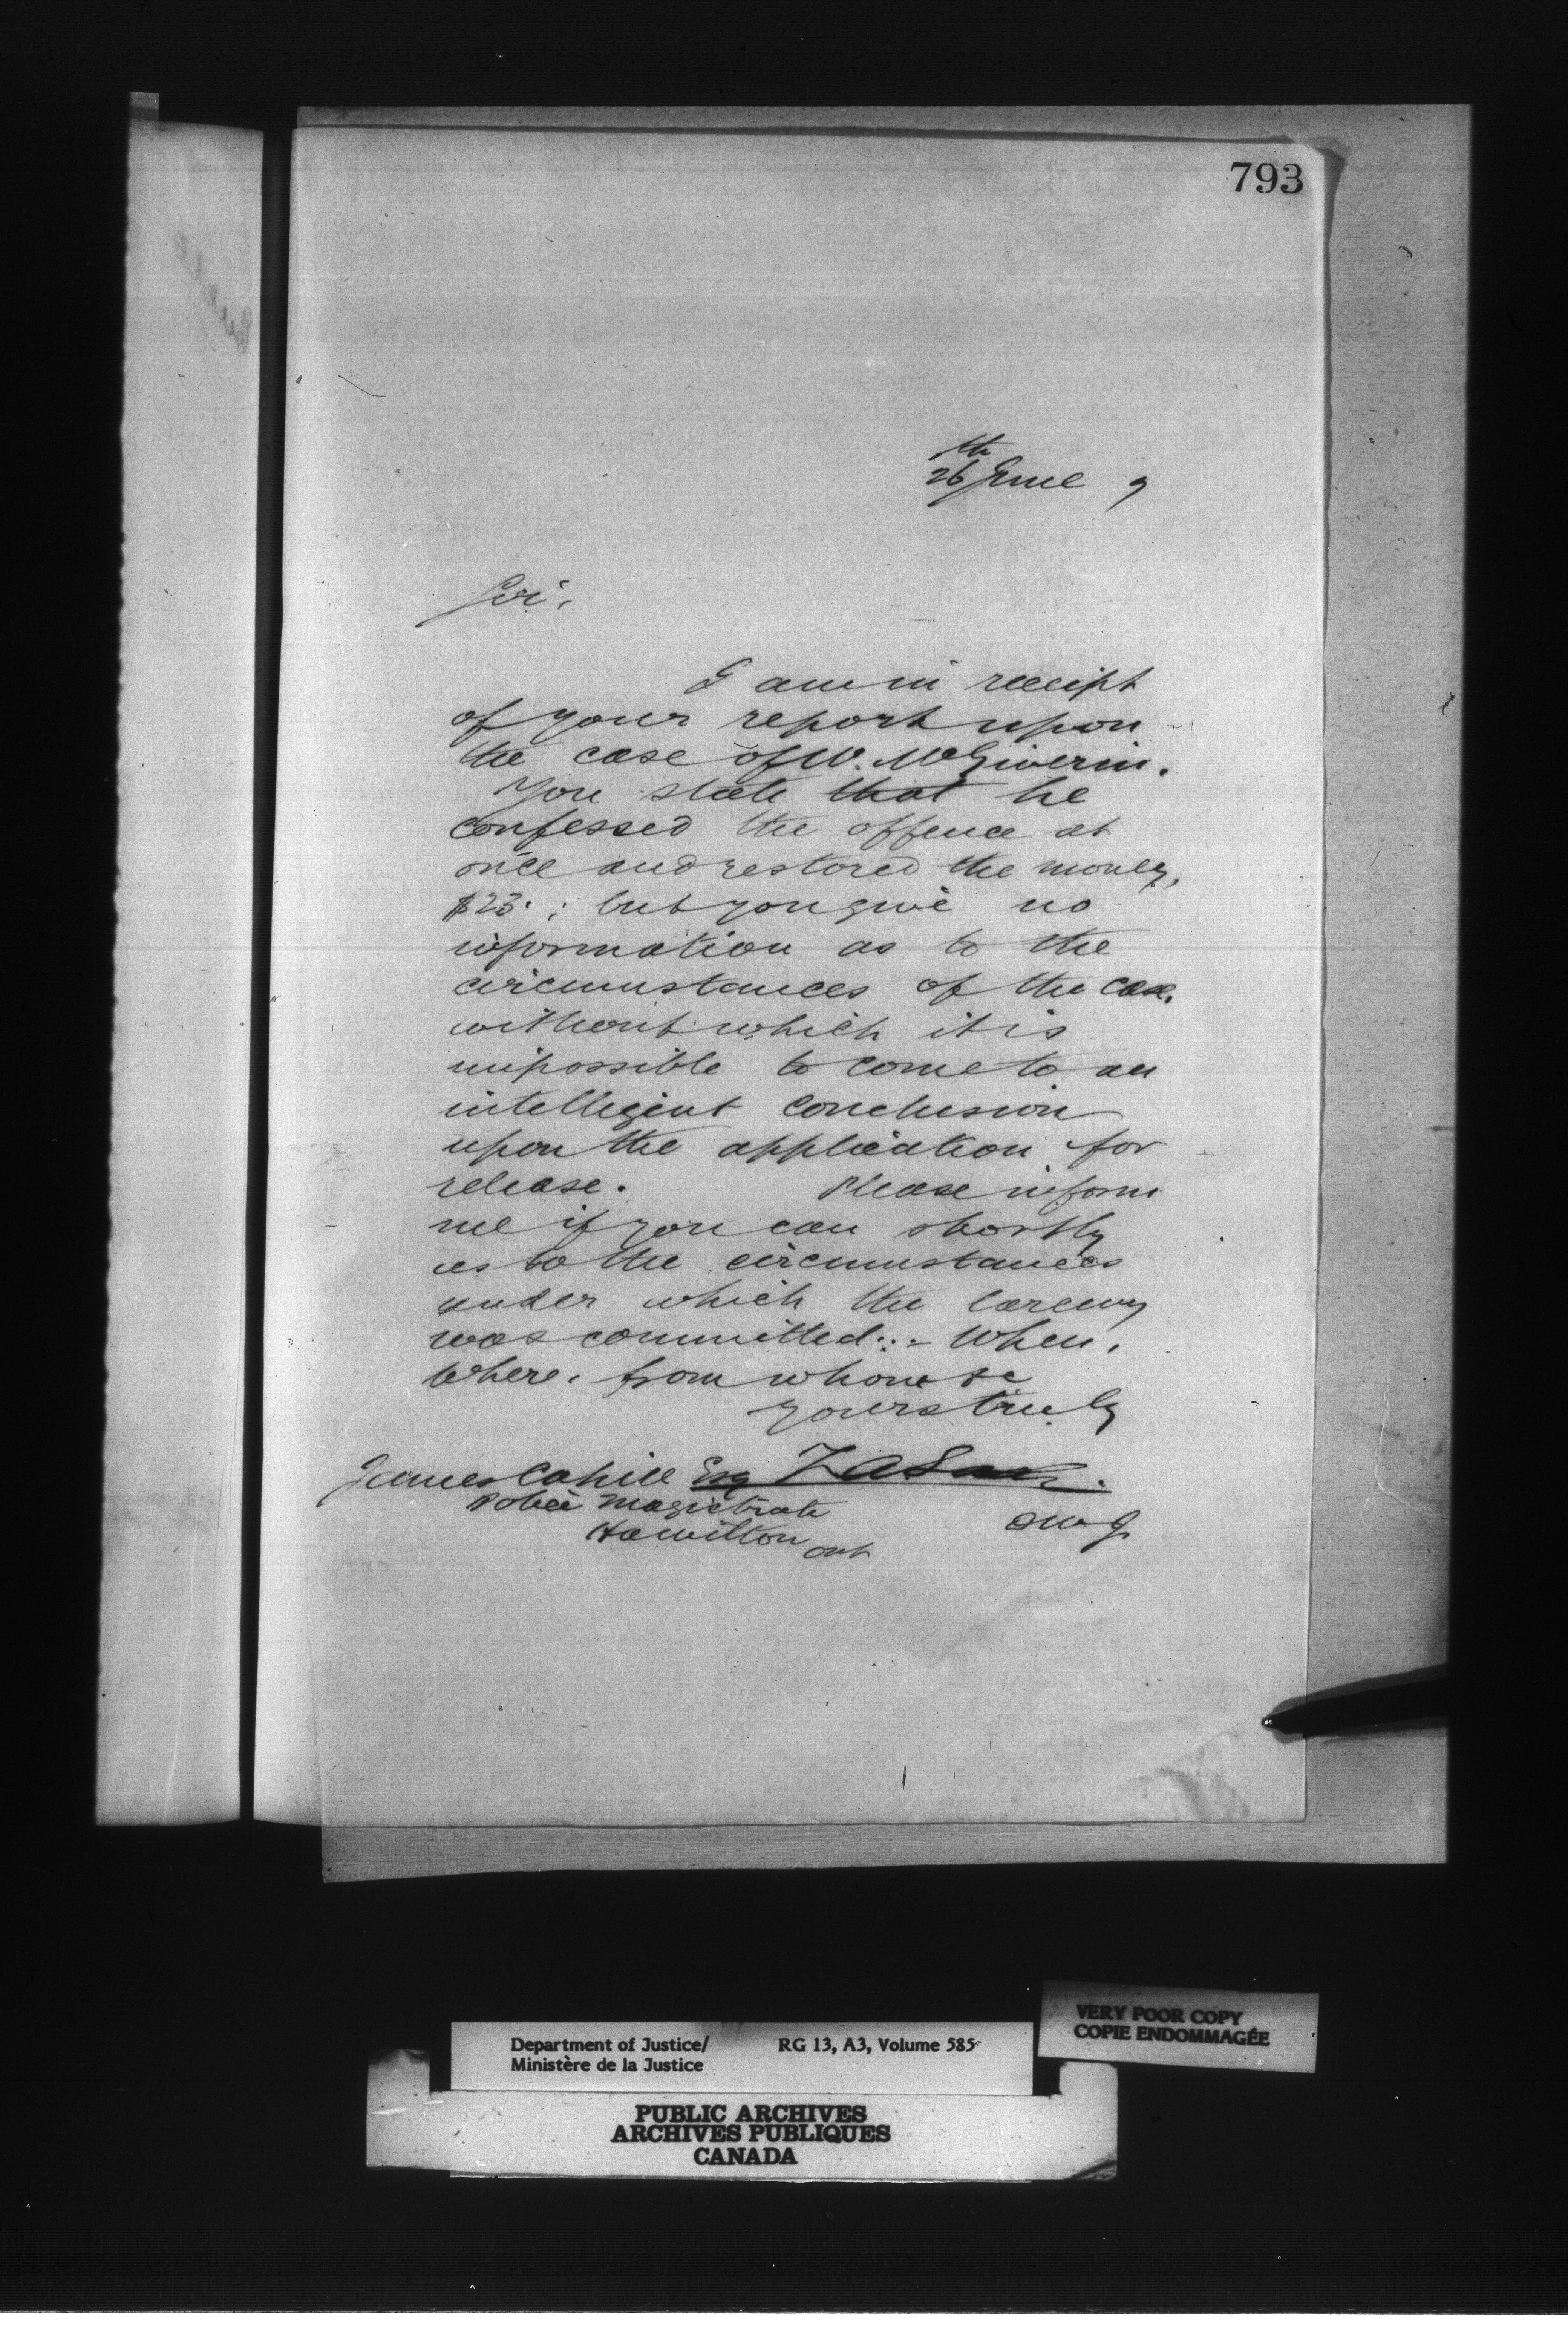 793
26th June 9
Sir,
I am in receipt
of your report upon
the case of W. McGiverin.
You state that he
confessed the offence at
once and restored the money,
$23. ; but you give no
information as to the
circumstances of the case,
without which it is
impossible to come to an
intelligent conclusion
upon the application for
release. Please inform
me if you can shortly
as to the circumstances
under which the larceny
was committed :- When,
where, from whom &c
Yours truly
James Cahill Esq
Police Magistrate
Hamilton Ont
VERY POOR COPY
COPIE ENDOMMAGÉE
Department of Justice/ RG 13, A3, Volume 585
Ministère de la Justice
PUBLIC ARCHIVES
ARCHIVES PUBLIQUES
CANADA